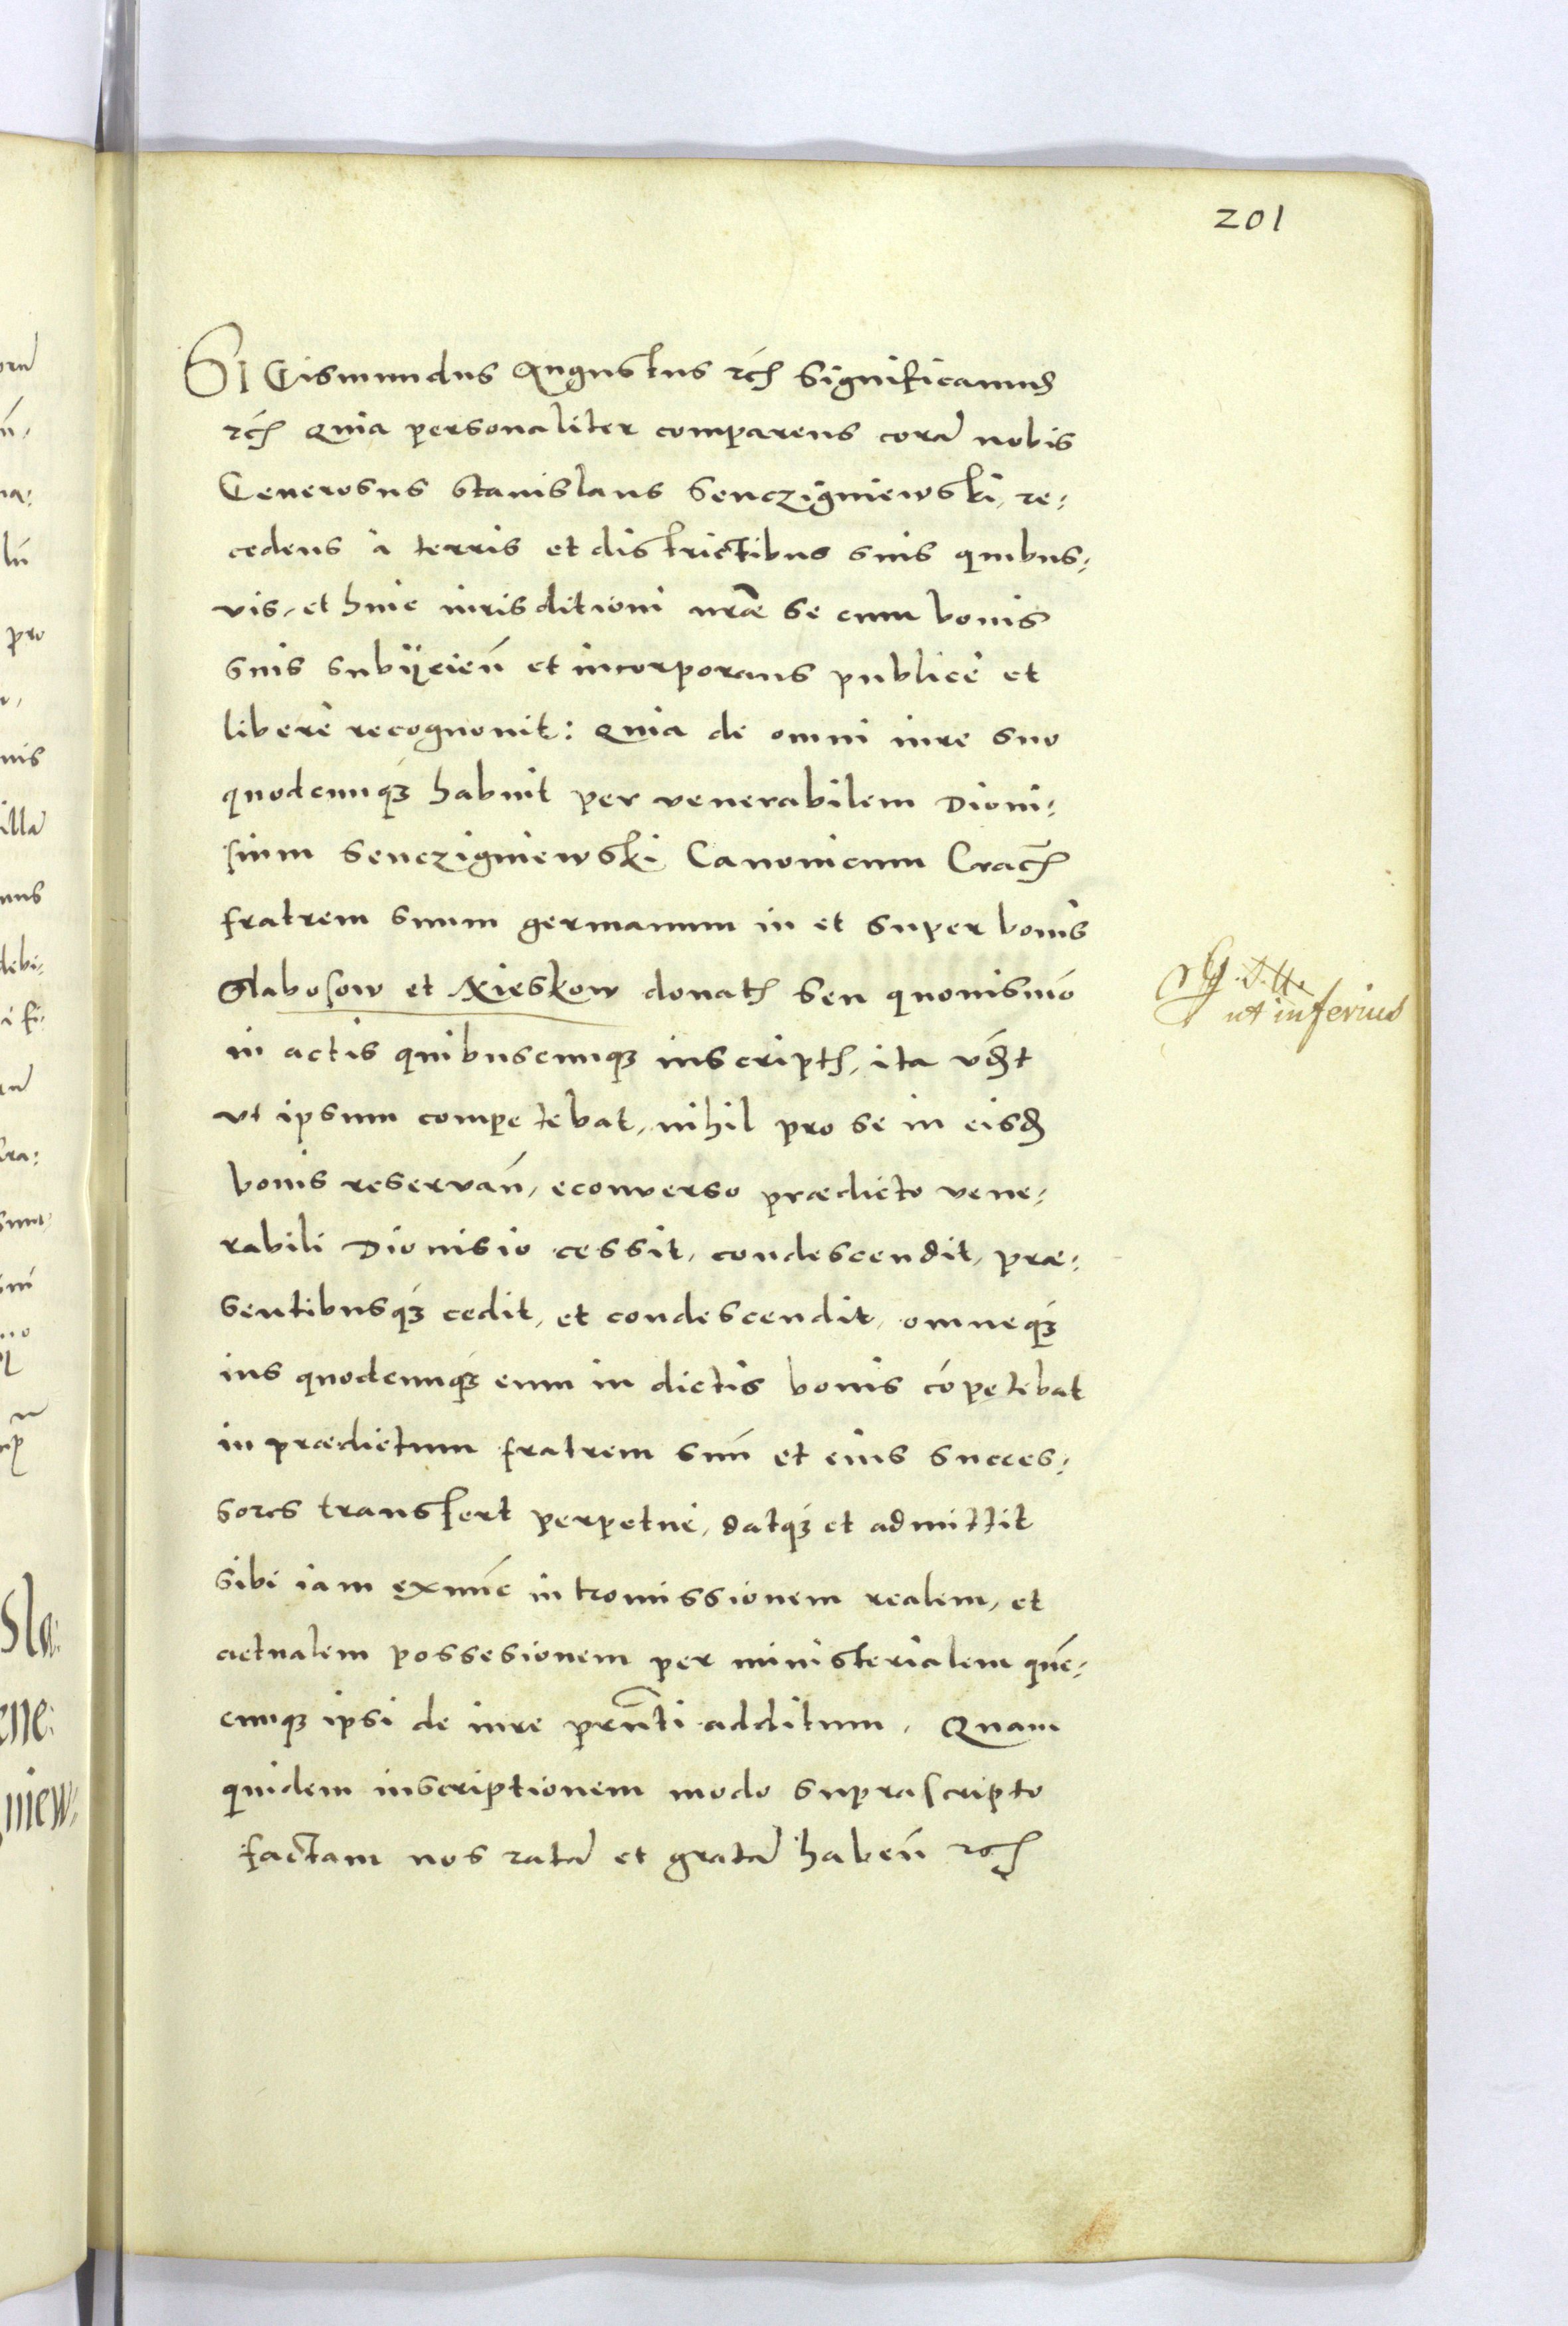 201
SIGismundus Augustus rcʒ Significamus
rcʒ Quia personaliter comparens corā nobis
Generosus Stanislaus Senczigniewski, re:
cedens à terris et districtibus suis quibus:
vis, et huic iurisditioni nr̃ae se cum bonis
suis subijcień et incorporans publicè et
liberè recognouit: Quia de omni iure suo
quodcunqʒ habuit per venerabilem Dioni:
sium Senczigniewski Canonicum Cracʒ
fratrem suum germanum in et super bonis
Glabosow et Xieskow donatʒ seu quouismō
in actis quibuscunqʒ inscriptʒ, ita vʒt
vt ipsum competebat, nihil pro se in eisdʒ
bonis reservań, econverso praedicto vene:
rabili Dionisio cessit, condescendit, prae:
sentibusqʒ cedit, et condescendit, omneqʒ
ius quodcunqʒ eum in dictis bonis cōpetebat
in praedictum fratrem suū et eius succes:
sores transfert perpetuè, datqʒ et admittit
sibi iam exnūc intromissionem realem, et
actualem possesionem per ministerialem quē:
cunqʒ ipsi de iure prñti additum. Quam
quidem inscriptionem modo suprascripto
factam nos ratā et gratā habeń rcʒ
ut inferius